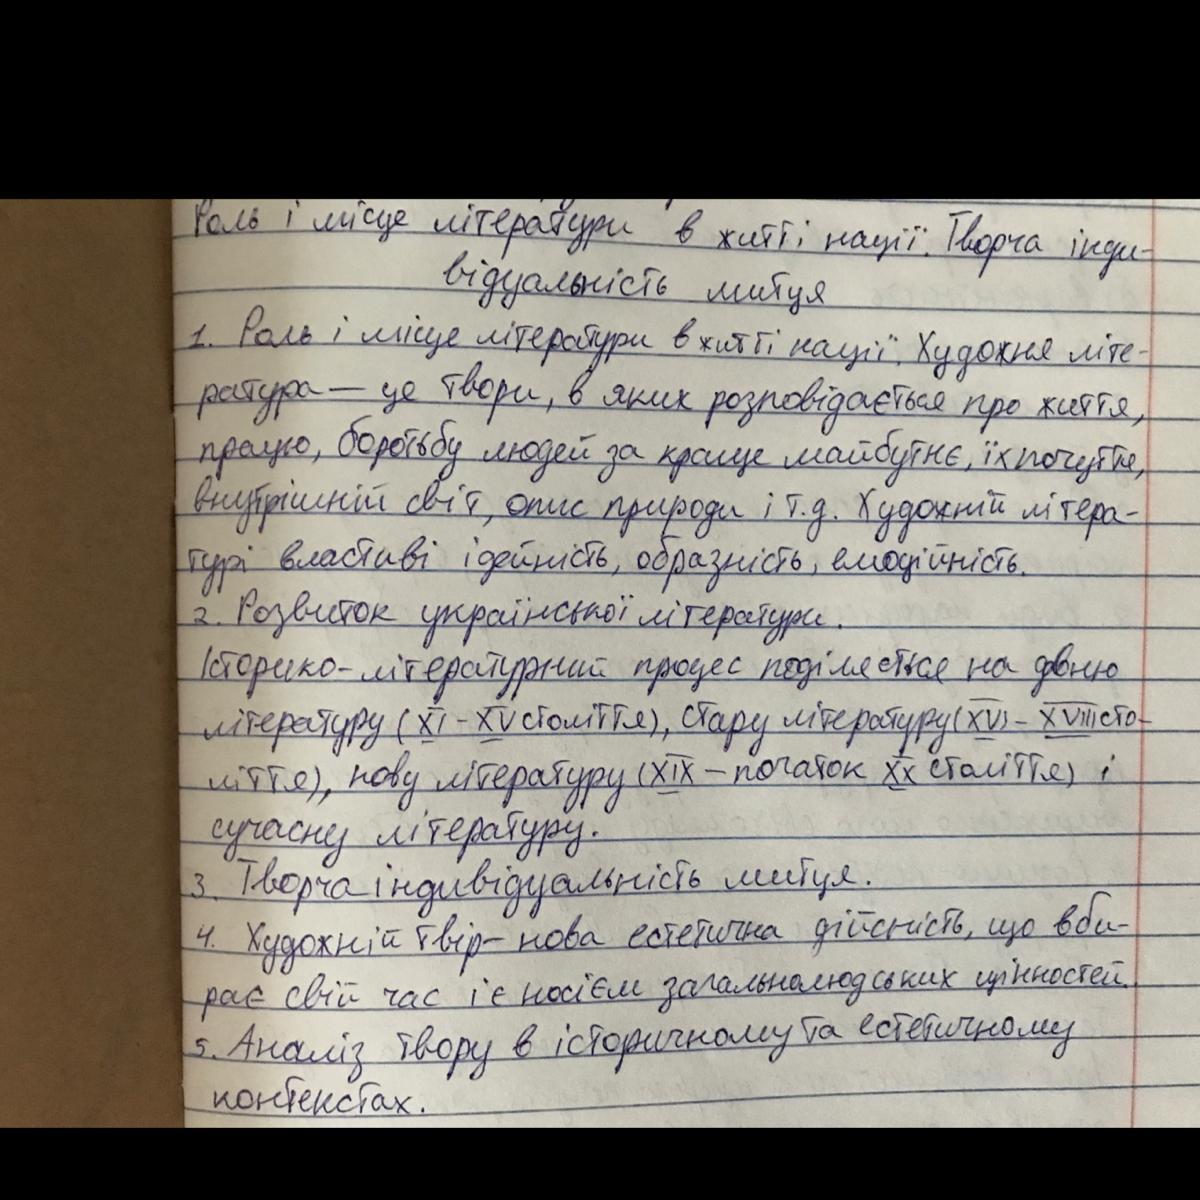 Роль і місце літератури в житті нації. Творча інди-
відуальність митця
1. Роль і місце літератури в житті нації. Художня літе-
ратура — це твори, в яких розповідається про життя,
працю, боротьбу людей за краще майбутнє, їх почуття,
внутрішній світ, опис природи і т.д. Художній літера-
турі властиві ідейність, образність, емоційність.
2. Розвиток української літератури.
Історико-літературний процес поділяється на давню
літературу (XI – XV століття), стару літературу (XVI – XVIII сто-
ліття), нову літературу (XIX – початок XX століття) і
сучасну літературу.
3. Творча індивідуальність митця.
4. Художній твір – нова естетична дійсність, що вби-
рає свій час і є носієм загальнолюдських цінностей.
5. Аналіз твору в історичному та естетичному
контекстах.